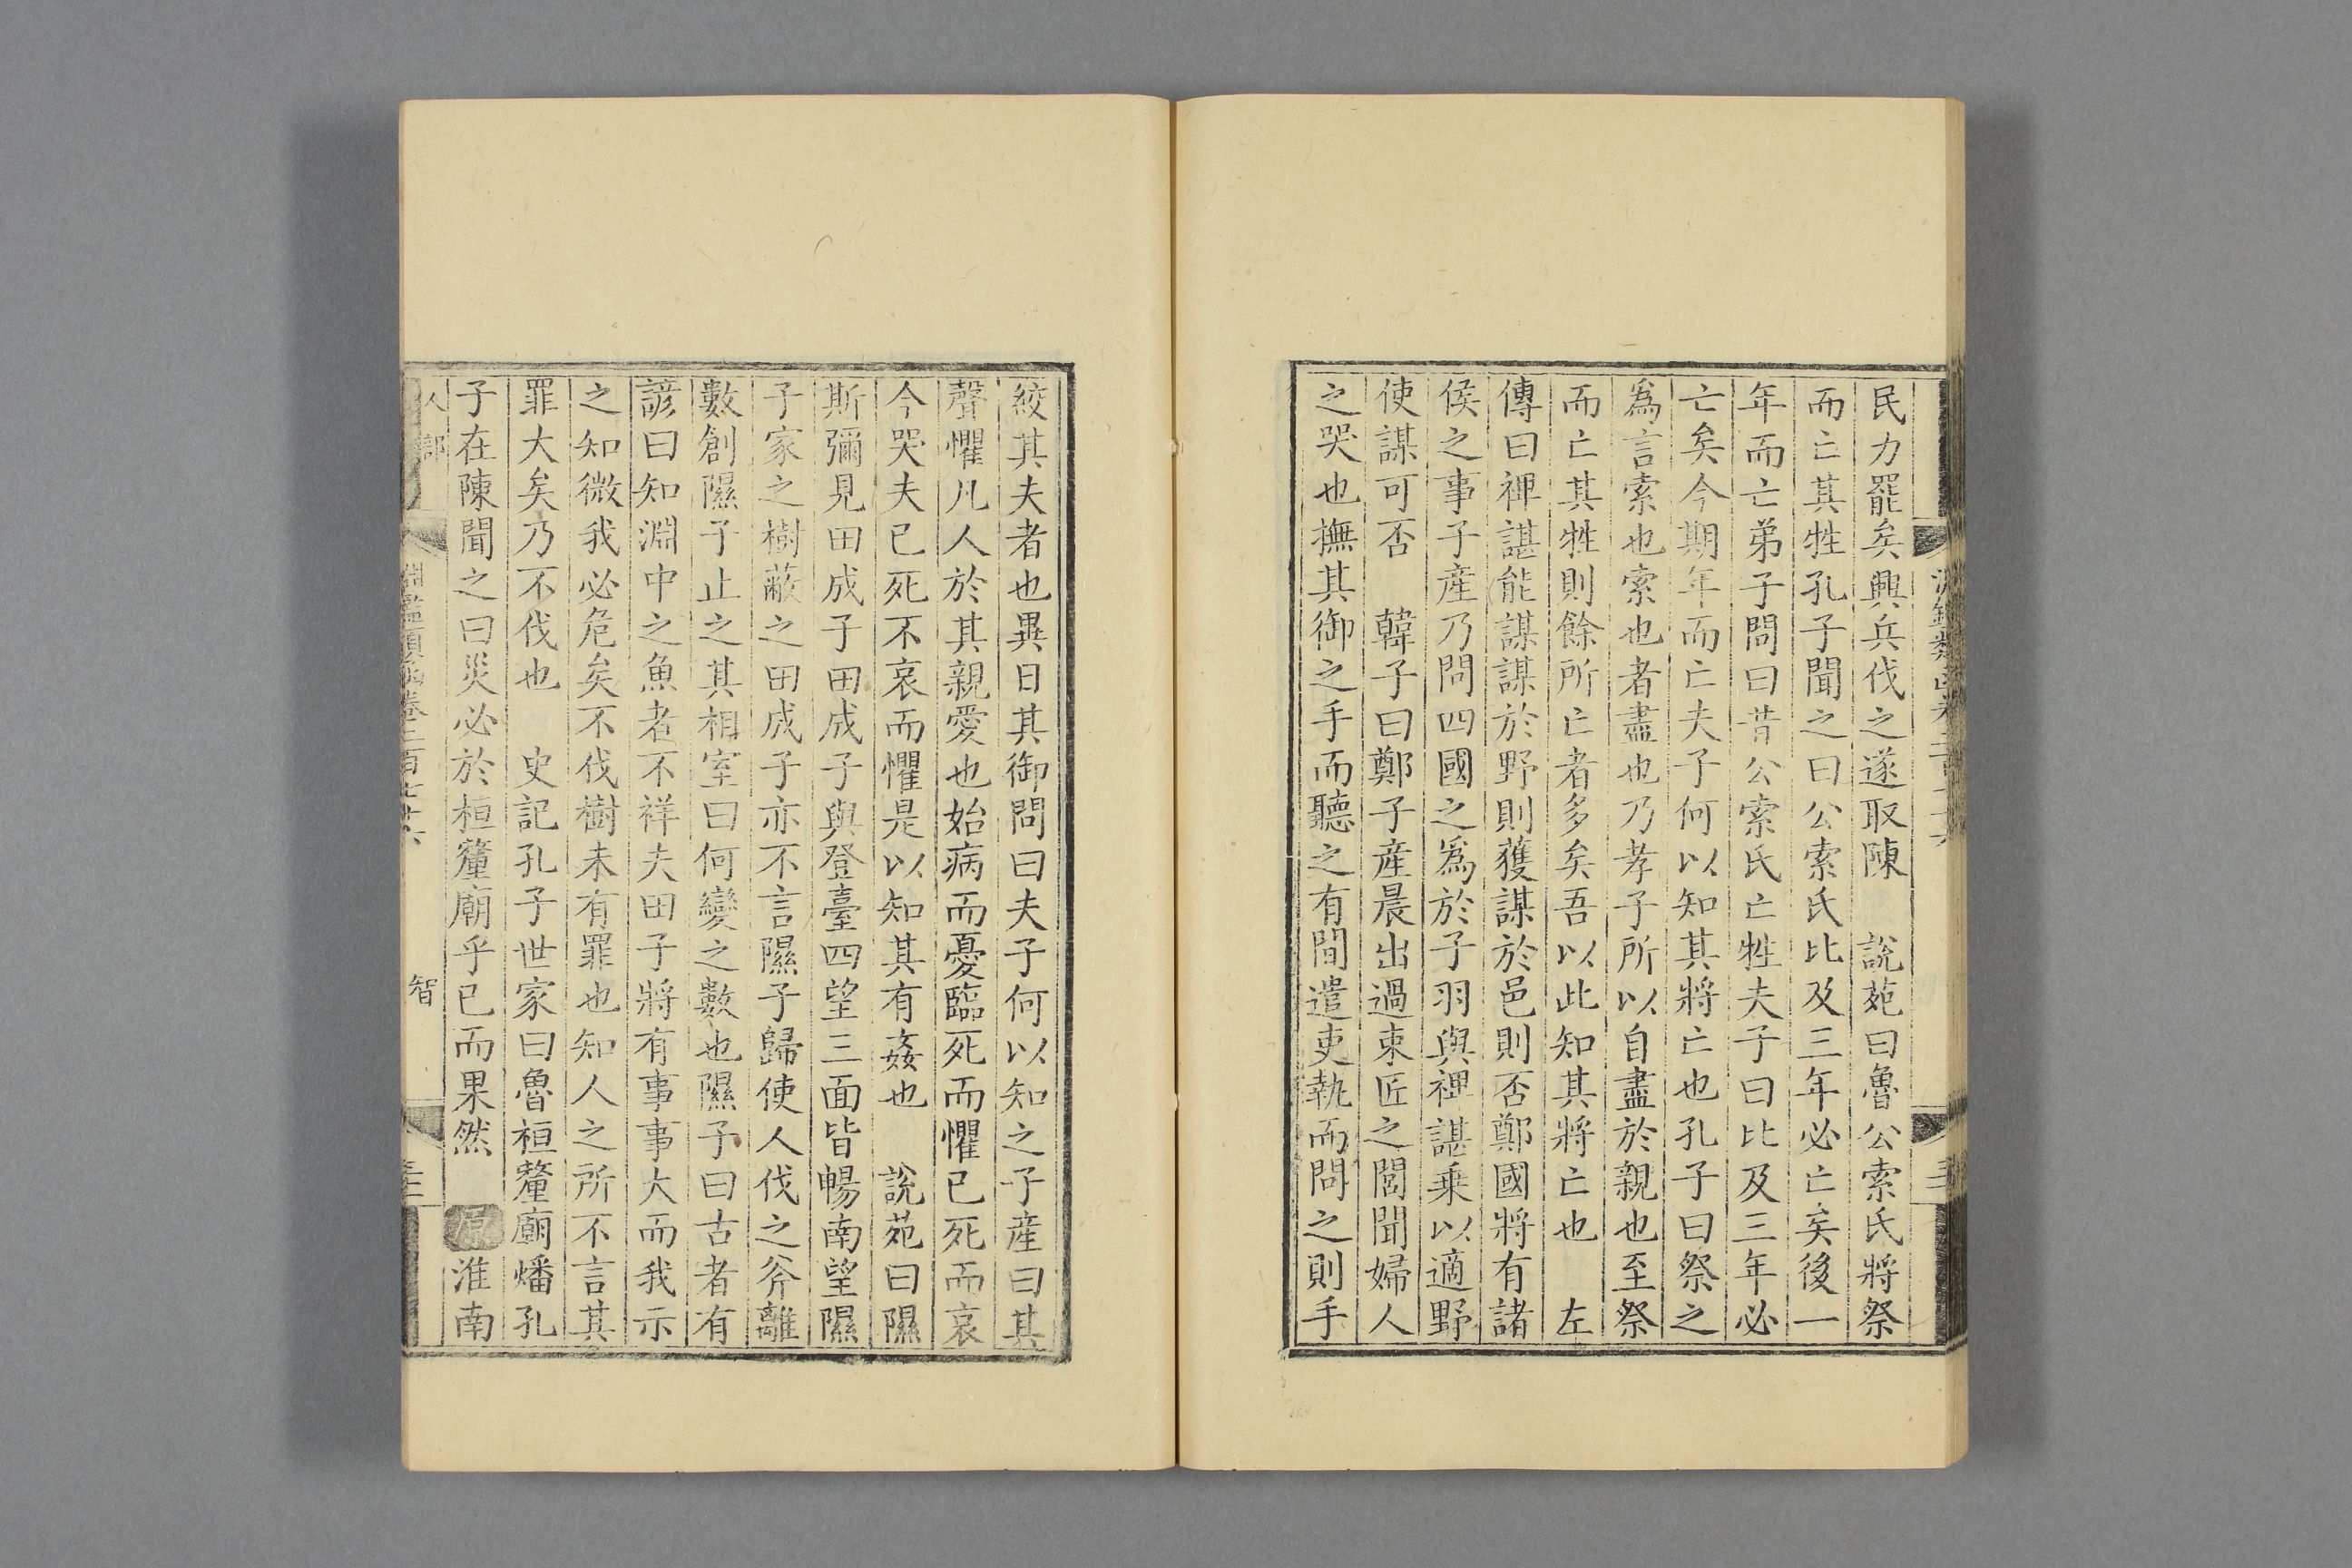 民力罷矣興兵伐之遂取陳　說苑曰魯公索氏將祭
而亡其牲孔子聞之曰公索氏比及三年必亡矣後一
年而亡弟子問曰昔公索氏亡牲夫子曰比及三年必
亡矣今期年而亡夫子何以知其將亡也孔子曰祭之
爲言索也索也者盡也乃孝子所以自盡於親也至祭
而亡其牲則餘所亡者多矣吾以此知其將亡也　左
傳曰裨諶能謀謀於野則獲謀於邑則否鄭國將有諸
侯之事子產乃問四國之爲於子羽與裨諶乗以適野
使謀可否　韓子曰鄭子產晨出過東匠之閭聞婦人
之哭也撫其御之手而聽之有間遣吏執而問之則手
絞其夫者也異日其御問曰夫子何以知之子產曰其
聲懼凡人於其親愛也始病而憂臨死而懼已死而哀
今哭夫已死不哀而懼是以知其有姦也　說苑曰隰
斯彌見田成子田成子與登臺四望三面皆暢南望隰
子家之樹蔽之田成子亦不言隰子歸使人伐之斧離
數創隰子止之其相室曰何變之數也隰子曰古者有
諺曰知淵中之魚者不祥夫田子將有事事大而我示
之知微我必危矣不伐樹未有罪也知人之所不言其
罪大矣乃不伐也　史記孔子世家曰魯桓釐廟燔孔
子在陳聞之曰災必於桓釐廟乎已而果然　原淮南
人部　淵鑑類函卷二百七十六　智